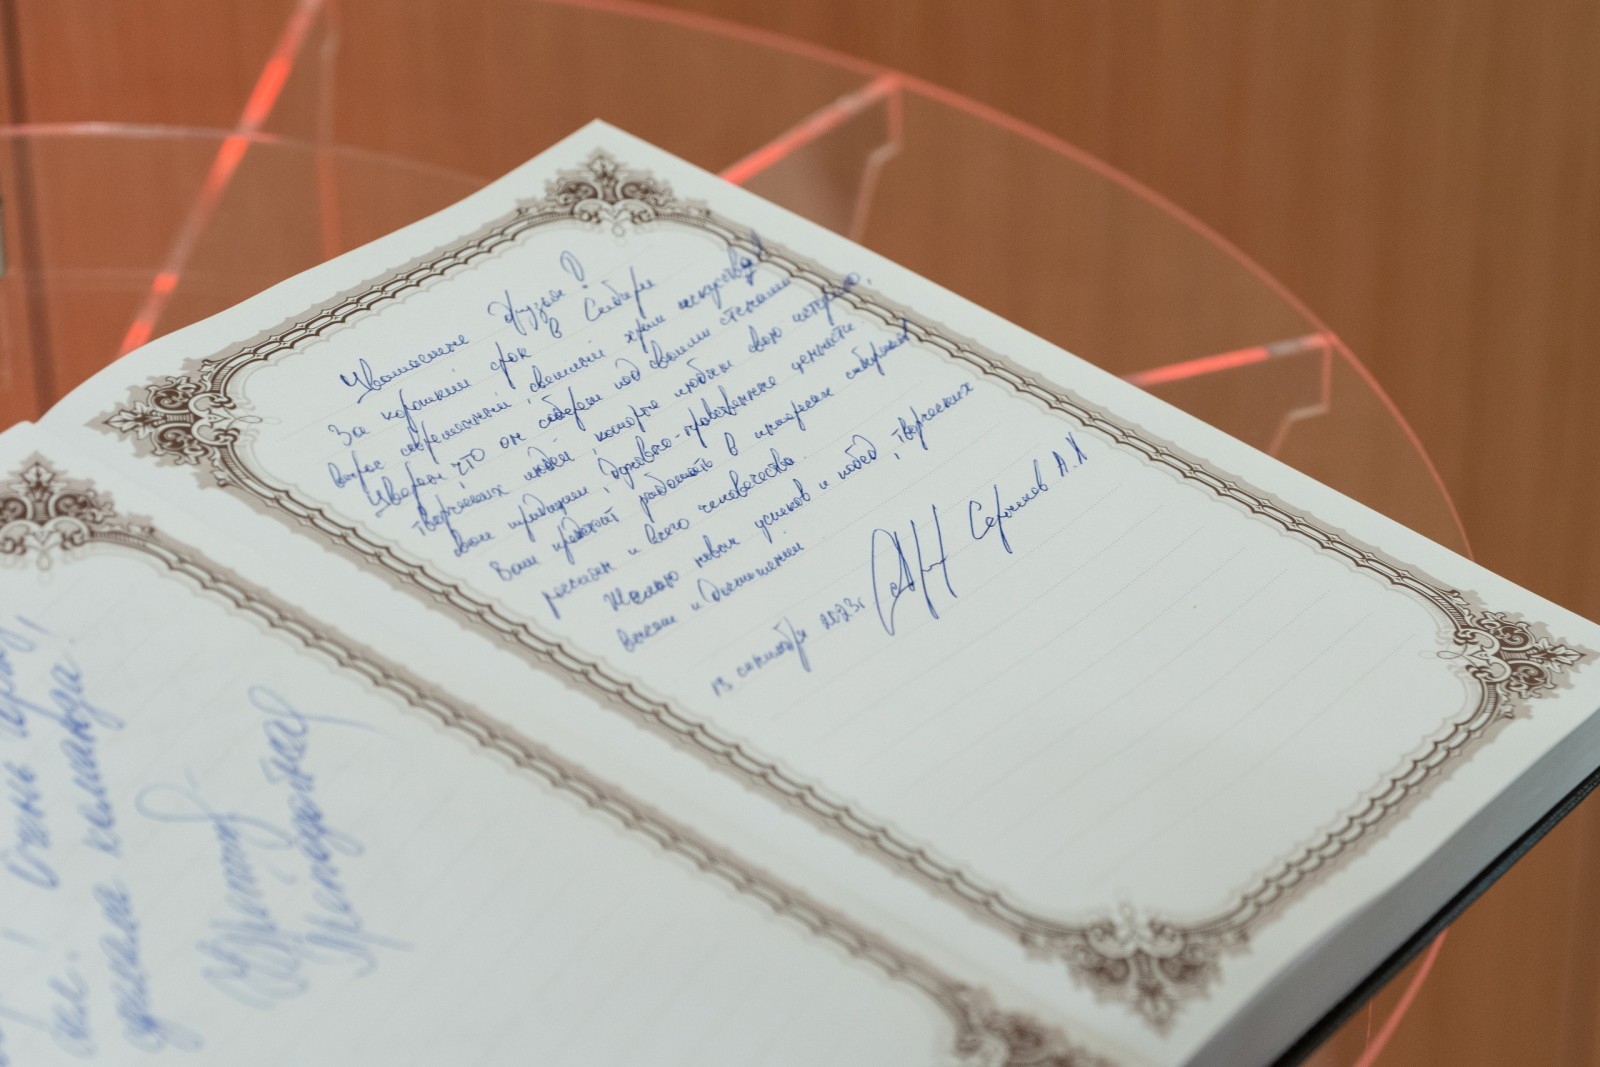 Очень ярко,
команда
Уважаемые друзья!
За короткий срок в Сибири
вырос современный, светлый храм искусства
Уверен, что он соберёт под своими стенами
творческих людей, которые любят свою историю,
свои традиции, духовно-нравственные ценности.
Вам предстоит работать в интересах сибиряков
россиян и всего человечества.
Желаю новых успехов и побед, творческих
высот и достижений
13 сентября 2023г. А.Н